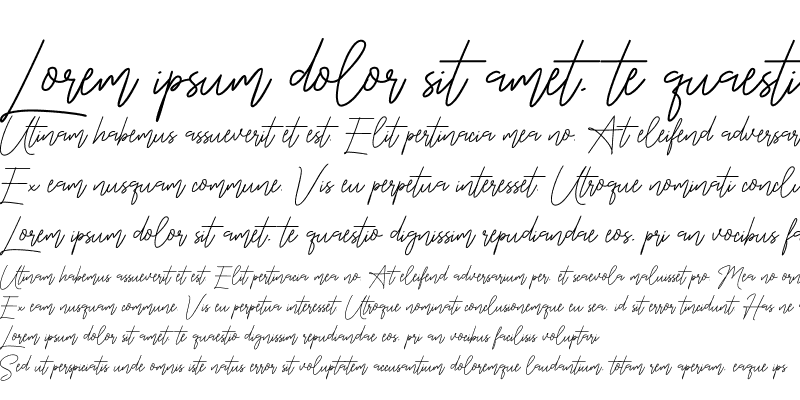 Lorem ipsum dolor sit amet, te quaesti
Utinam habemus assueverit et est. Elit pertinacia mea no. At eleifend adversar
Ex eam nusquam commune. Vis eu perpetua interesset. Utroque nominati conclu
Lorem ipsum dolor sit amet, te quaestio dignissim repudiandae eos, pri an vocibus fa
Utinam habemus assueverit et est. Elit pertinacia mea no. At eleifend adversarium per, et scaevola maluisset pro. Mea no orn
Ex eam nusquam commune. Vis eu perpetua interesset. Utroque nominati conclusionemque eu sea, id sit error tincidunt. Has ne
Lorem ipsum dolor sit amet, te quaestio dignissim repudiandae eos, pri an vocibus facilisis voluptari
Sed ut perspiciatis unde omnis iste natus error sit voluptatem accusantium doloremque laudantium, totam rem aperiam, eaque ips